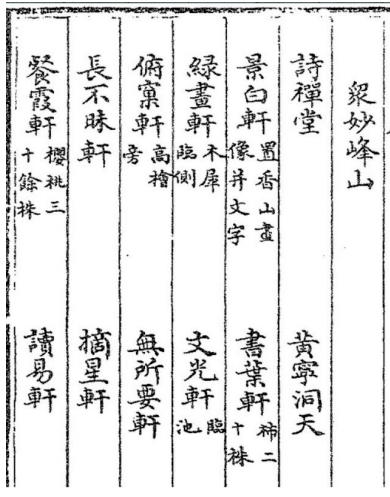 衆妙峰山
詩禪堂 黄寧洞天
景白軒 置香山畫像并文字 書葉軒 柿二十株
緑畫軒 木犀臨側 文光軒 臨池
俯窠軒 高檜旁 無所要軒
長不昧軒 摘星軒
餐霞軒 櫻桃三十餘株 讀易軒